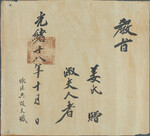 敎旨
姜氏贈
淑夫人者
光緖十八年十月 日